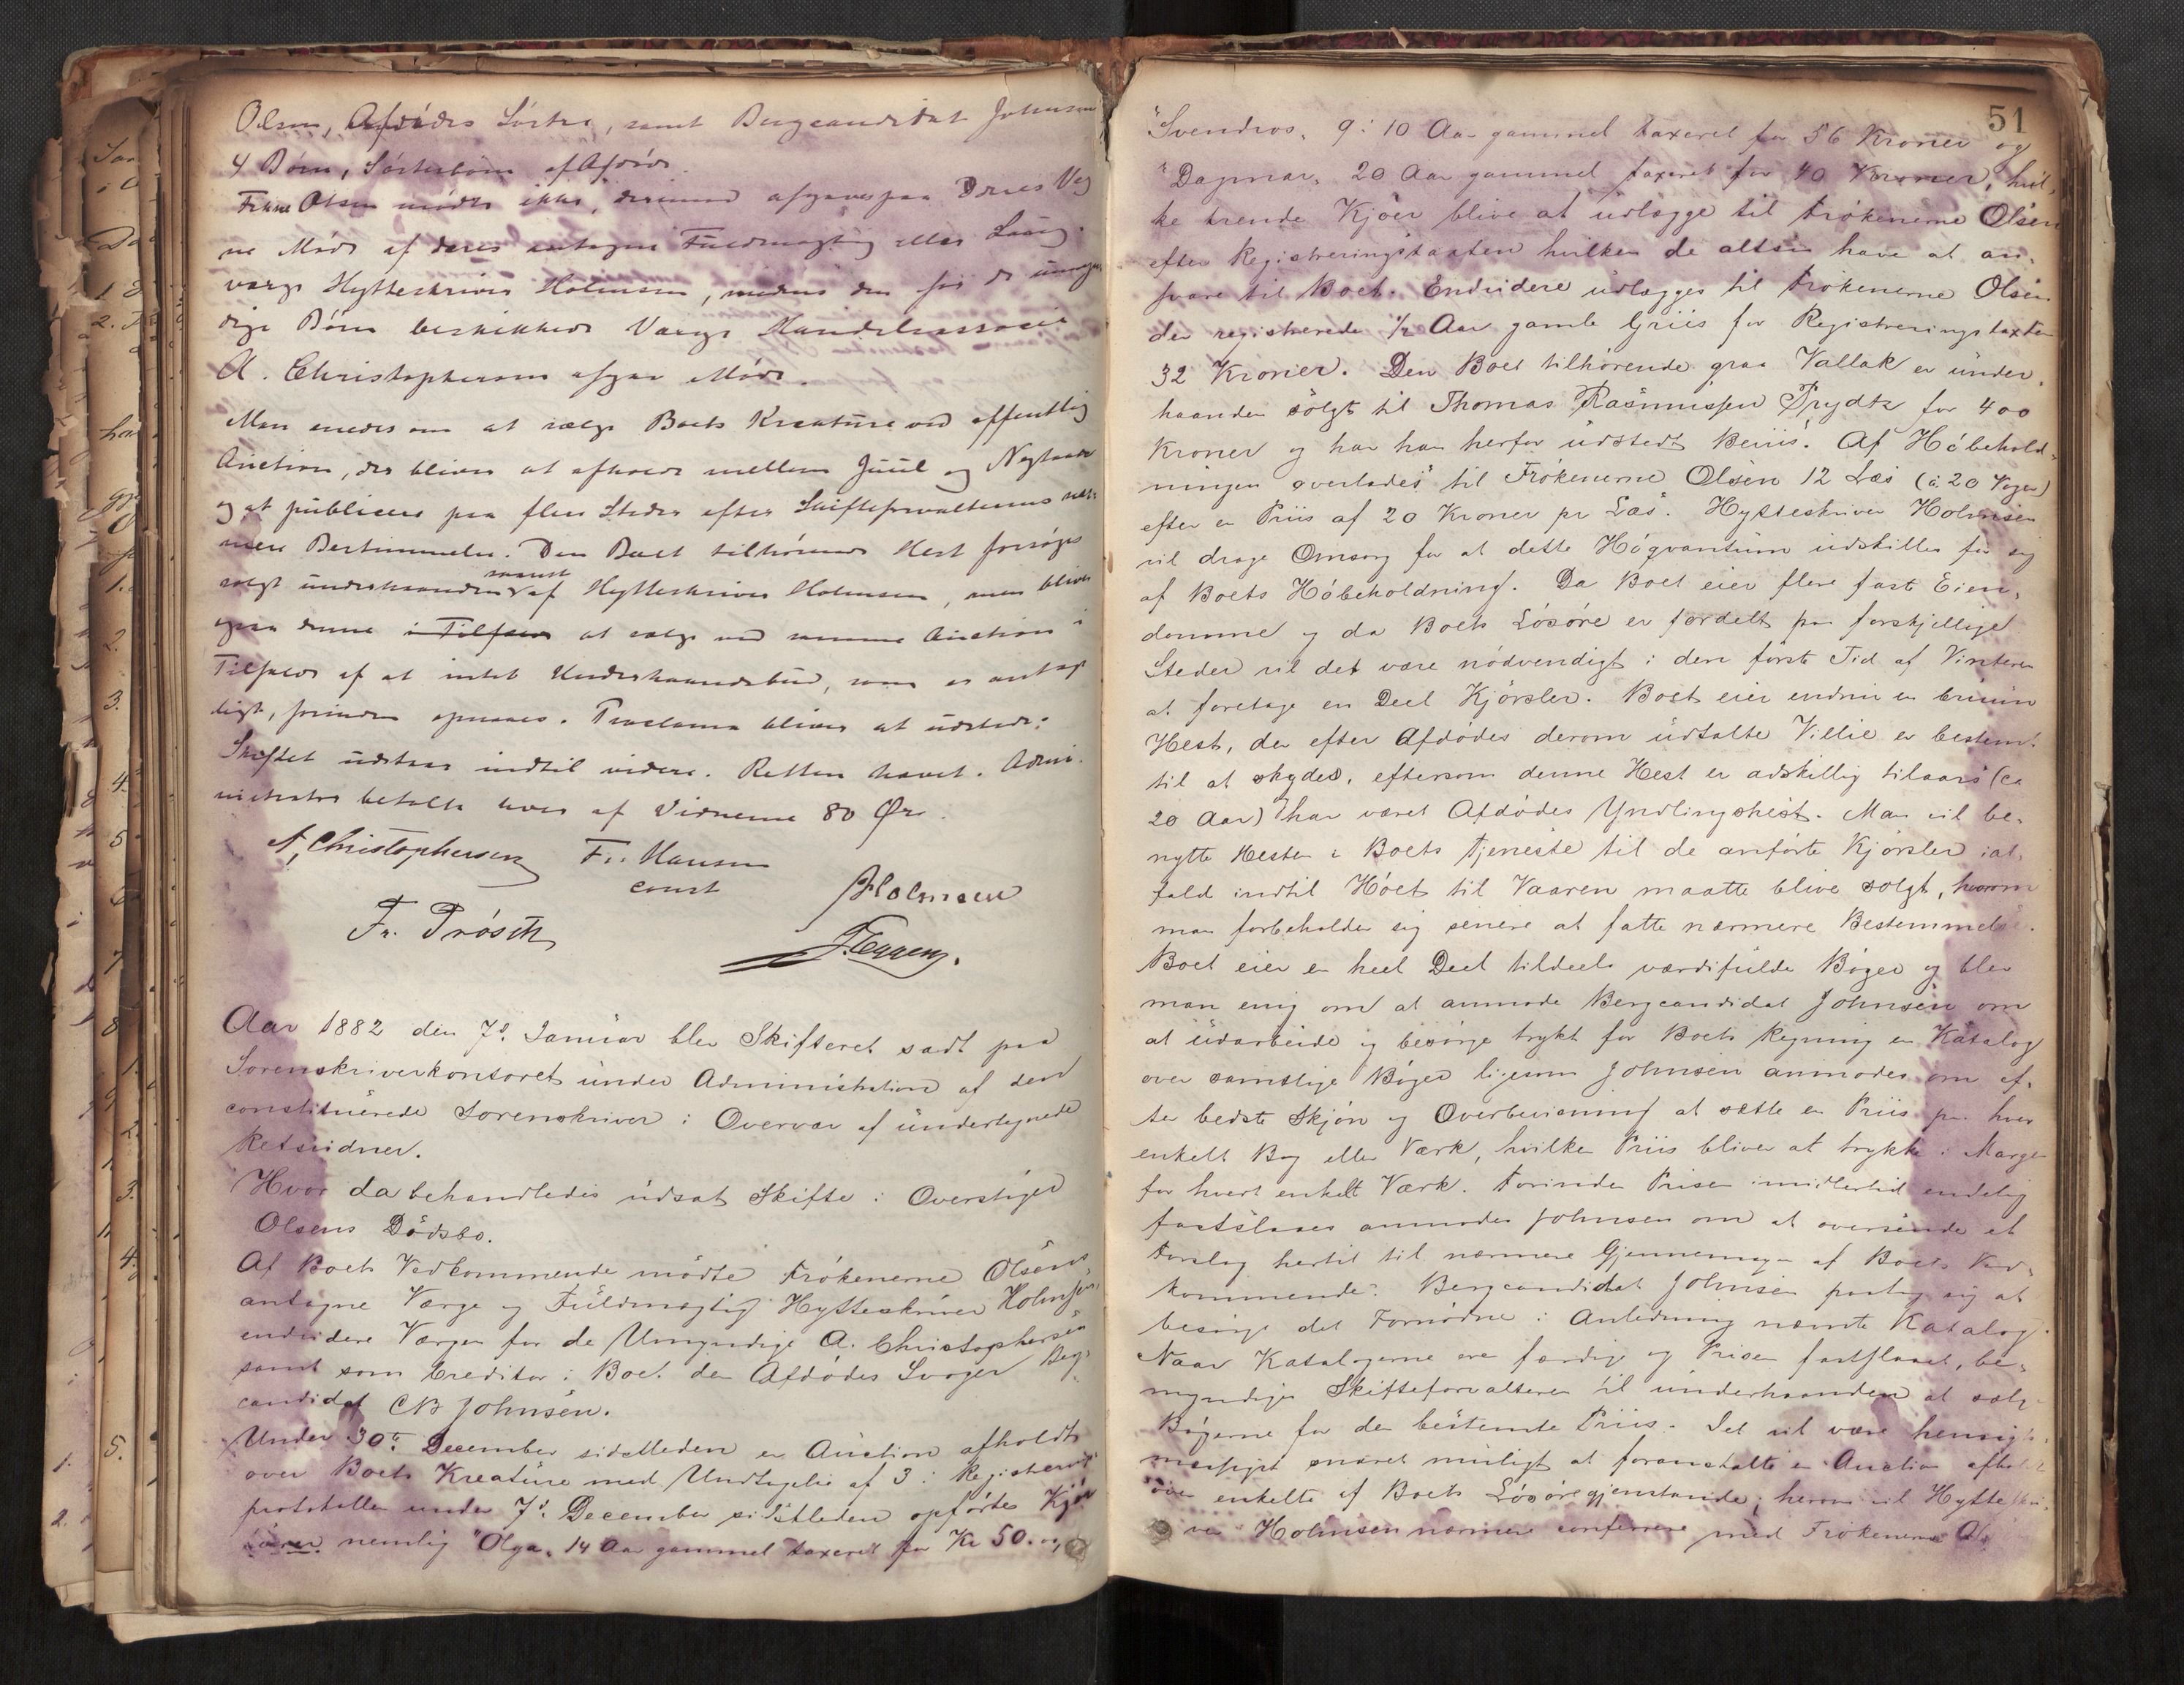 Olsen, Afdødes Søstre, samt Bergcandidat Johnsens
4 Børn, Søsterbørn af Afdøde.
Frkne Olsen mødte ikke, derimod afgaves paa Deres Veg
ne Møde af deres antagne Fuldmægtig eller Laug-
værge Hytteskriver Holmsen, medens den for de umyn
dige Børn beskikkede Værge Handelsmand
A. Christophersen afgav Møde.
Man enedes om at sælge Boets Kreature ved offentlig
Auction, der bliver at afholde mellem Juul og Nytaar
og at publicere paa flere Steder efter Skifteforvalterens nær-
mere Bestemmelse. Den Boet tilhørende Hest forsøges
solgt underhaanden snarest af Hytteskriver Holmsen, men bliver
ogsaa denne i Tilfælde at sælge ved samme Auction i
Tilfælde af at intet Underhaandsbud, som er antage
ligt, forinden opnaaes. Proclama bliver at udstede.
Skiftet udstaar indtil videre. Retten hævet. Admi-
nistrator betalte hver af Vidnerne 80 Øre.
A. Christophersen Fr. Hansen
const
Holmsen
Fr. Prøsch
Aar 1882 den 7de Januar blev Skifteret sadt paa
Sorenskriverkontoret under Administration af den
constituerede Sorenskriver i Overvær af undertegnede
Retsvidner.
Hvor da behandledes udsat Skifte i Overstiger
Olsens Dødsbo.
Af Boets Vedkommende mødte Frøkenerne Olsens
antagne Værge og Fuldmægtig Hytteskriver Holmsen,
endvidere Værgen for de Umyndige A. Christophersen
samt som Creditor i Boet den Afdødes Svoger Berg-
candidat CB Johnsen.
Under 30te December sidstleden er Auction afholdt
over Boets Kreature med Undtagelse af 3 i Registrerings
protokollen under 7de December sidstleden opførte Kjør
nemlig "Olga" 14 Aar gammel taxeret for Kr 50. og
51
"Svendros" 9 á 10 Aar gammel taxeret for 56 Kroner og
"Dagmar" 20 Aar gammel taxeret for 40 Kroner, hvil-
ke trende Kjøer blive at udlægge til Frøkenerne Olsen
efter Registreringstaxten hvilken de altsaa have at an-
svare til Boet. Endvidere udlægges til Frøkenerne Olsen
den registrerede 1/2 Aar gamle Griis for Registreringstaxten
32 Kroner. Den Boet tilhørende graa Vallak er under
haanden solgt til Thomas Rasmussen Prydtz for 400
Kroner og har han herfor udstedt Beviis. Af Høbehold-
ningen overlades til Frøkenerne Olsen 12 Læs (á 20 Voger)
efter en Priis af 20 Kroner pr Læs. Hytteskriver Holmsen
vil drage Omsorg for at dette Høqvantum udskilles for sig
af Boets Høbeholdning. Da Boet eier flere faste Eien-
domme og da Boets Løsøre er fordelt paa forskjellige
Steder vil det være nødvendigt i den første Tid af Vinteren
at foretage en Deel Kjørsler. Boet eier endnu en bruun
Hest, der efter Afdødes derom udtalte Villie er bestemt
til at skydes, eftersom denne Hest er adskillig tilaars (ca
20 Aar) har været Afdødes Yndlingshest. Man vil be-
nytte Hesten i Boets Tjeneste til de anførte Kjørsler ial-
fald indtil Høet til Vaaren maatte blive solgt, hvorom
man forbeholder sig senere at fatte nærmere Bestemmelse.
Boet eier en heel Deel tildeels værdifulde Bøger og blev
man enig om at anmode Bergcandidat Johnsen om
at udarbeide og besørge trykt for Boets Regning en Katalog
over samtlige Bøger ligesom Johnsen anmodes om ef-
ter bedste Skjøn og Overbeviisning at sætte en Priis paa hver
enkelt Bog eller Værk, hvilken Priis bliver at trykke i Margen
for hvert enkelt Værk. Forinden Prisen imidlertid endelig
fastslaaes anmodes Johnsen om at oversende et
Forslag hertil til nærmere Gjennemsyn af Boets Ved-
kommende. Bergcandidat Johnsen paatog sig at
besørge det Fornødne i Anledning nævnte Katalog.
Naar Katalogerne ere færdige og Prisen fastslaaet, be-
myndiges Skifteforvalteren til underhaanden at sælge
Bøgerne for den bestemte Priis. Det vil være hensigts-
mæssigst snarest muligt at foranstalte en Auction afholdt
over enkelte af Boets Løsøregjenstande, herom vil Hytteskri-
ver Holmsen nærmere conferere med Frøkenerne Ol-